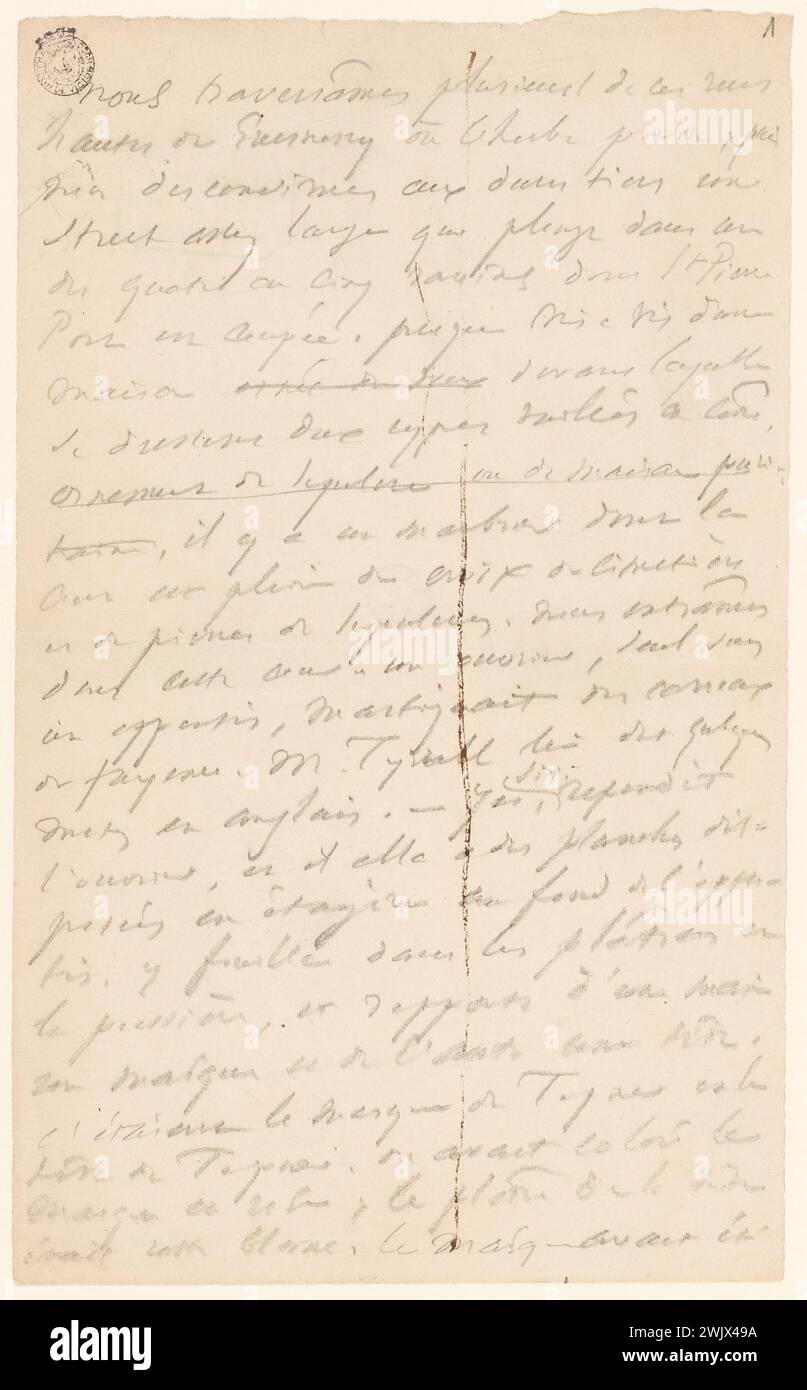 1
Nous traversâmes plusieurs de ces rues
hautes de Guernesey où l'herbe pousse, puis
nous descendîmes aux deux tiers une
street assez large qui plonge dans un
des quatre ou cinq ravins dont St Pierre
Port est coupée. presque vis à vis d'une
maison ornée de deux devant laquelle
se dressent deux cyprès taillés en cône,
ornement de sépulcre ou de maison puri-
taine, il y a un marbrier dont la
cour est pleine de croix de cimetière
et de pierres de sépulcres. nous entrâmes
dans cette cour. un ouvrier, seul sous
un appentis, mastiquait des carreaux
de fayence. M. Tyrell lui dit quelques
mots en anglais. — Yes, sir, répondit
l'ouvrier, et il alla à des planches dis-
posées en étagère au fond de l'appen-
tis, y fouilla dans les plâtras et
la poussière, et rapporta d'une main
un masque et de l'autre une tête.
c'étaient le masque de Tapner et la
tête de Tapner. on avait coloré le
masque en rose ; le plâtre de la tête
était resté blanc. le masque avait été
alamy
Image ID: 2WJX49A
www.alamy.com